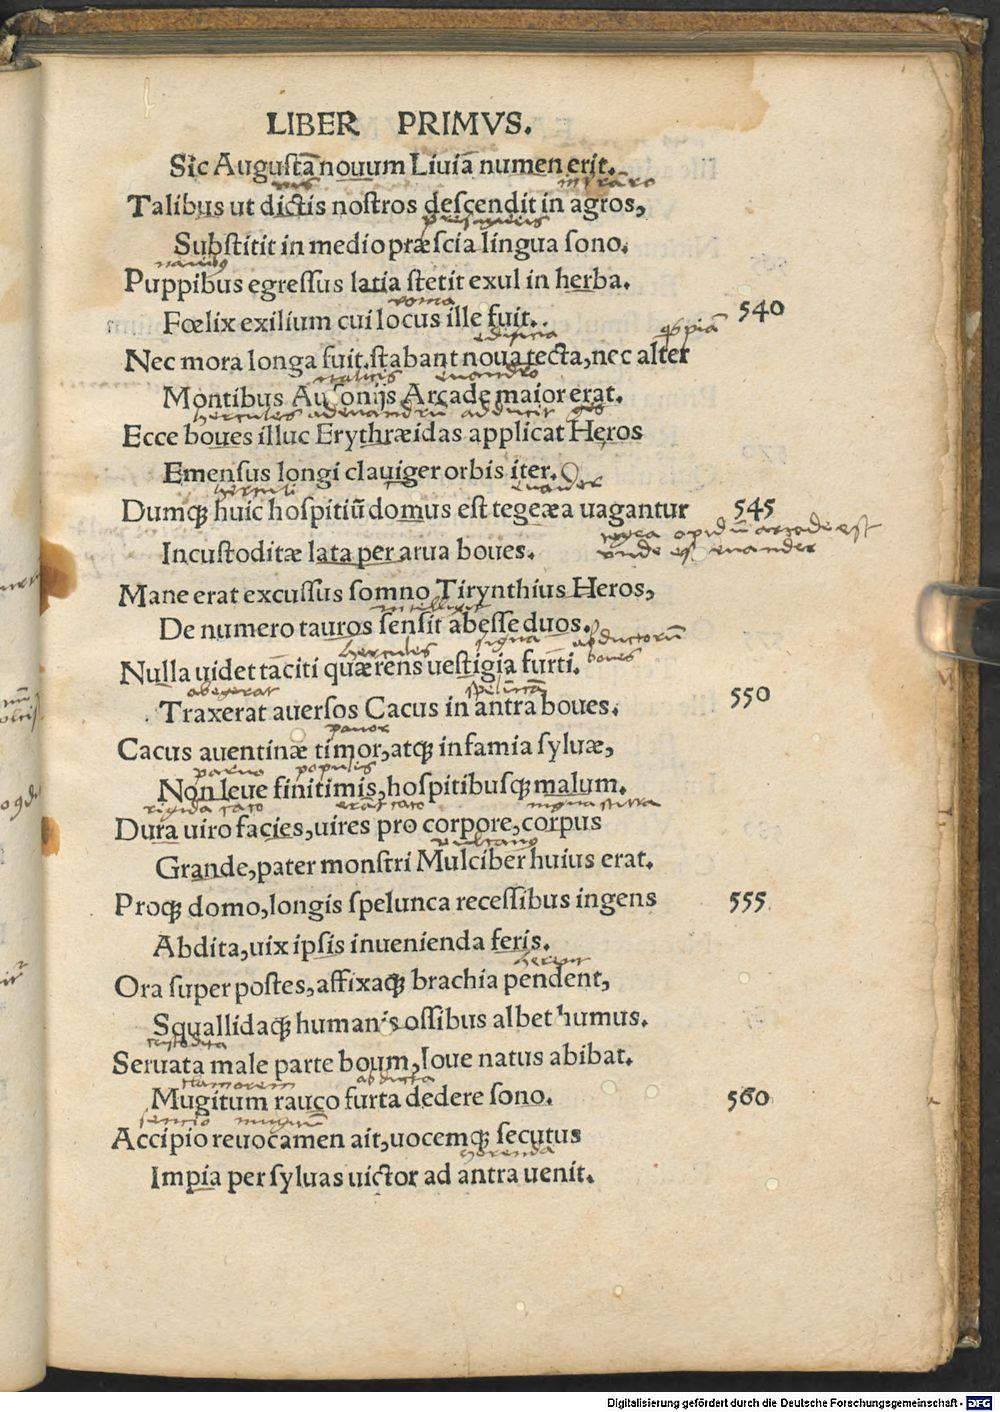 LIBER PRIMVS.
Sic Auguſtā nouum Liuiā numen erit.
Talibus ut dictis noſtros deſcendit in agros,
Subſtitit in medio præſcia lingua ſono.
Puppibus egreſſus latia ſtetit exul in herba.
roma
Fœlix exilium cui locus ille fuit. 540
edificia
Nec mora longa fuit.ſtabant noua tecta,nec alter
italicis euandro
Montibus Auſonijs Arcade maior erat.
hercules ad euandrū adducit
Ecce boues illuc Erythræidas applicat Heros
Emenſus longi clauiger orbis iter.
herculi euander
Dumqꝫ huic hoſpitiū domus eſt tegeæa uagantur 545
Incuſtoditæ lata per arua boues.
unde euander
Mane erat excuſſus ſomno Tirynthius Heros,
intelligit
De numero tauros ſenſit abeſſe duos.
hercules signa abductorū
boues
Nulla uidet taciti quærens ueſtigia furti.
abegerat
Traxerat auerſos Cacus in antra boues. 550
pauor
Cacus auentinæ timor,atqꝫ infamia ſyluæ,
paruo populis
Non leue finitimis,hoſpitibuſqꝫ malum.
rigida caco
Dura uiro facies,uires pro corpore,corpus
vulcanus
Grande,pater monſtri Mulciber huius erat.
Proqꝫ domo,longis ſpelunca receſſibus ingens 555
Abdita,uix ipſis inuenienda feris.
herent
Ora ſuper poſtes,affixaqꝫ brachia pendent,
Squallidaqꝫ humanis oſſibus albet humus.
custodita
Seruata male parte boum,Ioue natus abibat.
clamorem abducta
Mugitum rauco furta dedere ſono. 560
sentio
Accipio reuocamen ait,uocemqꝫ ſecutus
horenda
Impia per ſyluas uictor ad antra uenit.
Digitalisierung gefördert durch die Deutsche Forschungsgemeinschaft - DFG